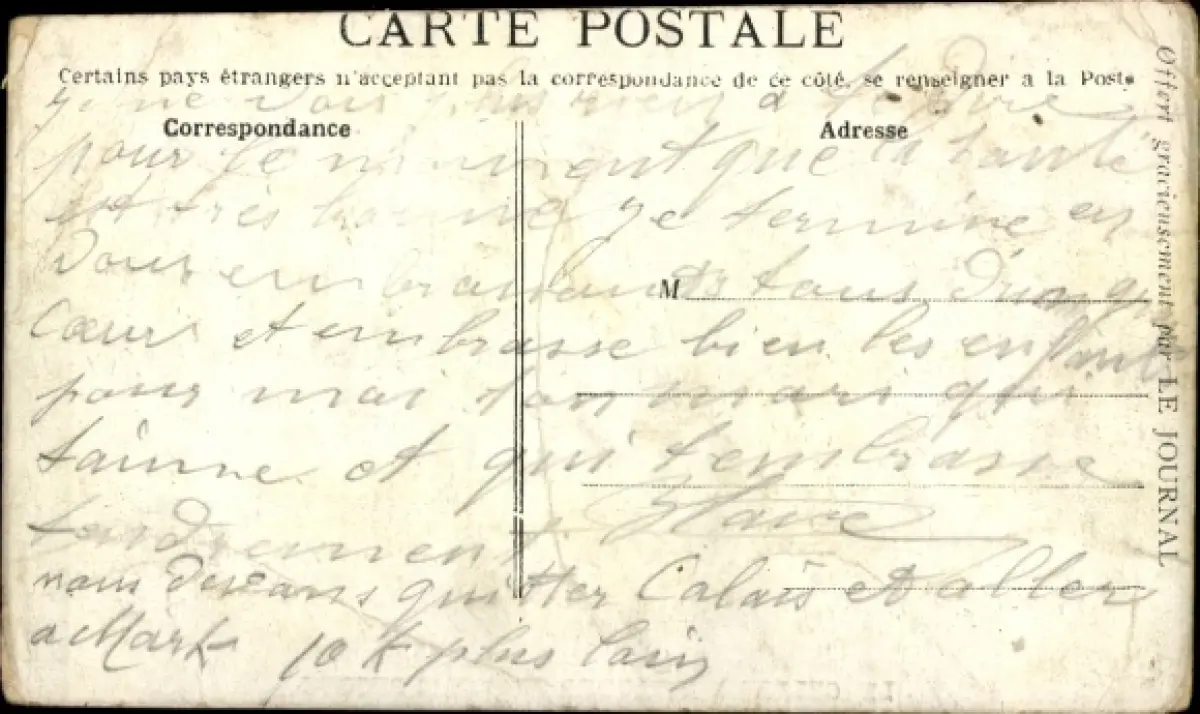 CARTE POSTALE
Certains pays étrangers n'acceptant pas la correspondance de ce côté, se renseigner a la Poste
Correspondance
Adresse
M
Offert gracieusement par LE JOURNAL
je ne vois plus rien a te dire
pour le moment que la santé
est très bonne je termine en
vous embrassants tous d'un
cœur et embrasse bien les enfants
pour moi ton mari qui
t'aime et qui t'embrasse
tendrement
nous devons quitter Calais et aller
a Mark 10 k plus loin